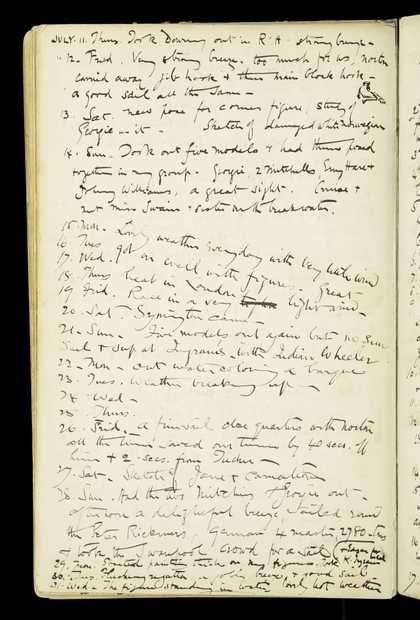 JULY. 11. Thurs. Took Downing out in R.A. strong breeze -
" 12 - Frid. Very strong breeze. too much for us, Norton
carried away jib hook & then main block hook -
a good sail all the same -
13. Sat. new pose for corner figure, study of
Georgie - it - Sketch of damaged white Norwegian
14. Sun - Took out five models & had them posed
together in my group. Georgie, 2 Mitchells, Emy Hare &
Johnny Williams, a great sight. Cruise &
met Miss Swain & sister with breakwater.
15. Mon. Lovely weather everyday with very little wind
16. Tues got on well with figures. Great
17. Wed. heat in London
18. Thurs
19. Frid. Race in a very light wind -
20. Sat - Symington came -
21. Sun - Five models out again but no sun
Sail & sup at Ingrams, with Indian Wheeler
22. Mon - out water coloring a barque
23. Tues. Weather breaking up -
24. Wed -
25. Thurs.
26. Frid. a fine sail close quarters with Norton
all the time saved our time by 40 secs. off
him & 2 secs. from Tucker -
27. Sat - Sketch of Jane & carnations
28. Sun. Had the two Mitchells & Georgie out -
afternoon a delightful breeze, sailed round
the Peter Rickmers, German 4 master, 2980 tons
& took the Swanpool crowd for a sail
29. Mon. Painted panther skin on my figures. R. 
30. Tues. Flushing regatta, a jolly breeze, & good sail
31. Wed - The figure standing in water lovely hot weather